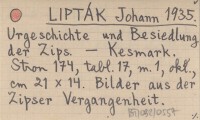 LIPTÁK Johann 1935.
Urgeschichte und Besiedlung
der Zips. – Kesmark.
Stron 174, tabl. 17, m. 1, okł.,
cm 21 × 14. Bilder aus der
Zipser Vergangenheit.